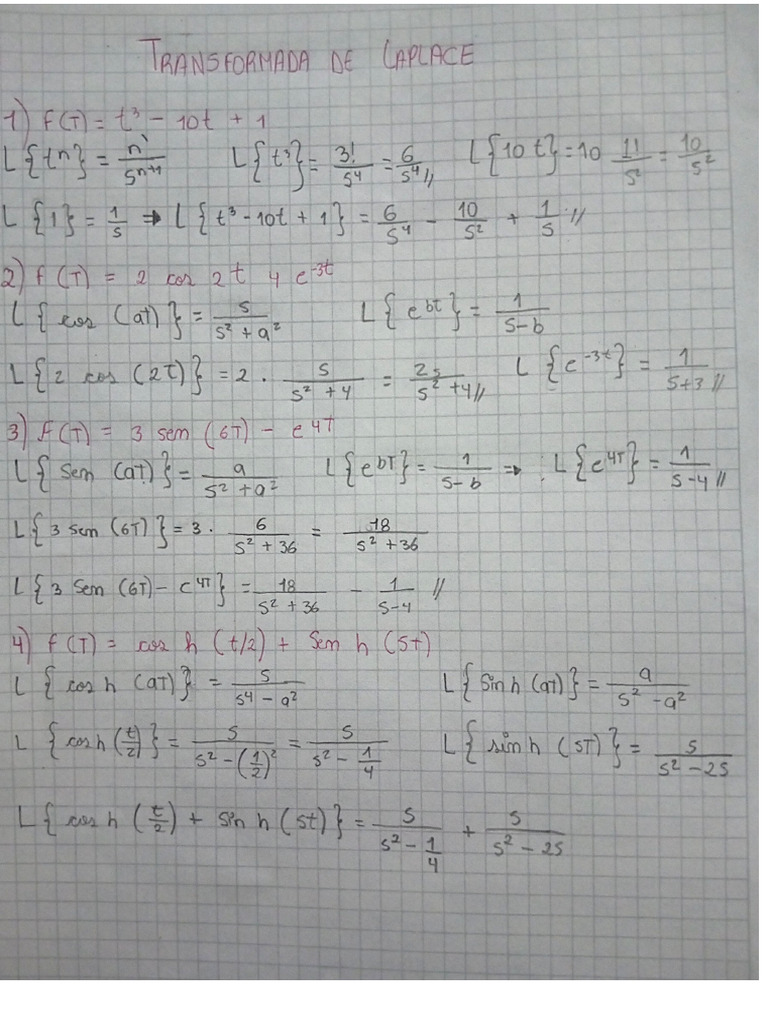 TRANSFORMADA DE LAPLACE
1) F(T) = t³ - 10t + 1
L{tⁿ} = n!/sⁿ⁺¹ L{t³} = 3!/s⁴ = 6/s⁴ // L{10t} = 10 1!/s² = 10/s²
L{1} = 1/s ⇒ L{t³ - 10t + 1} = 6/s⁴ - 10/s² + 1/s //
2) F(T) = 2 cos 2t 4 e⁻³ᵗ
L{cos (at)} = s/(s² + a²) L{e^bt} = 1/(s-b)
L{2 cos (2t)} = 2 · s/(s² + 4) = 2s/(s² + 4) // L{e⁻³ᵗ} = 1/(s+3) //
3) F(T) = 3 sem (6T) - e^4T
L{Sem (aT)} = a/(s² + a²) L{e^bT} = 1/(s-b) ⇒ L{e^4T} = 1/(s-4) //
L{3 sen (6T)} = 3 · 6/(s² + 36) = 18/(s² + 36)
L{3 Sem (6T) - e^4T} = 18/(s² + 36) - 1/(s-4) //
4) F(T) = cos h (t/2) + Sem h (5t)
L{cosh (aT)} = s/(s⁴ - a²) L{Sinh (aT)} = a/(s² - a²)
L{cosh (t/2)} = s/(s² - (1/2)²) = s/(s² - 1/4) L{sinh (5T)} = 5/(s² - 25)
L{cosh (t/2) + Sinh (5t)} = s/(s² - 1/4) + 5/(s² - 25)